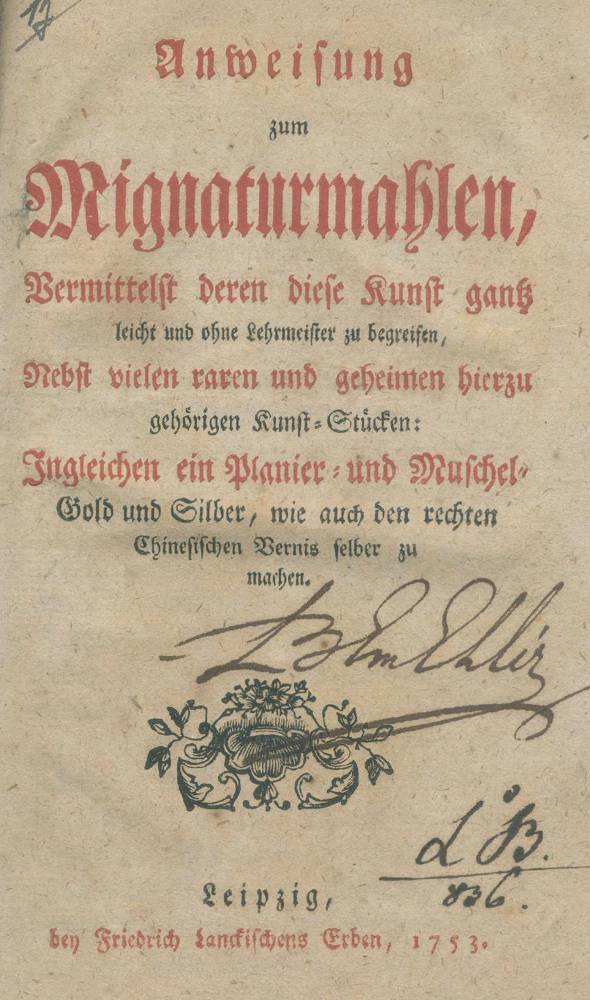 Anweisung
zum
Mignaturmahlen,
Vermittelst deren diese Kunst gantz
leicht und ohne Lehrmeister zu begreifen,
Nebst vielen raren und geheimen hierzu
gehörigen Kunst-Stücken:
Ingleichen ein Planier- und Muschel-
Gold und Silber, wie auch den rechten
Chinesischen Vernis selber zu
machen.
836.
Leipzig,
bey Friedrich Lanckischens Erben, 1753.